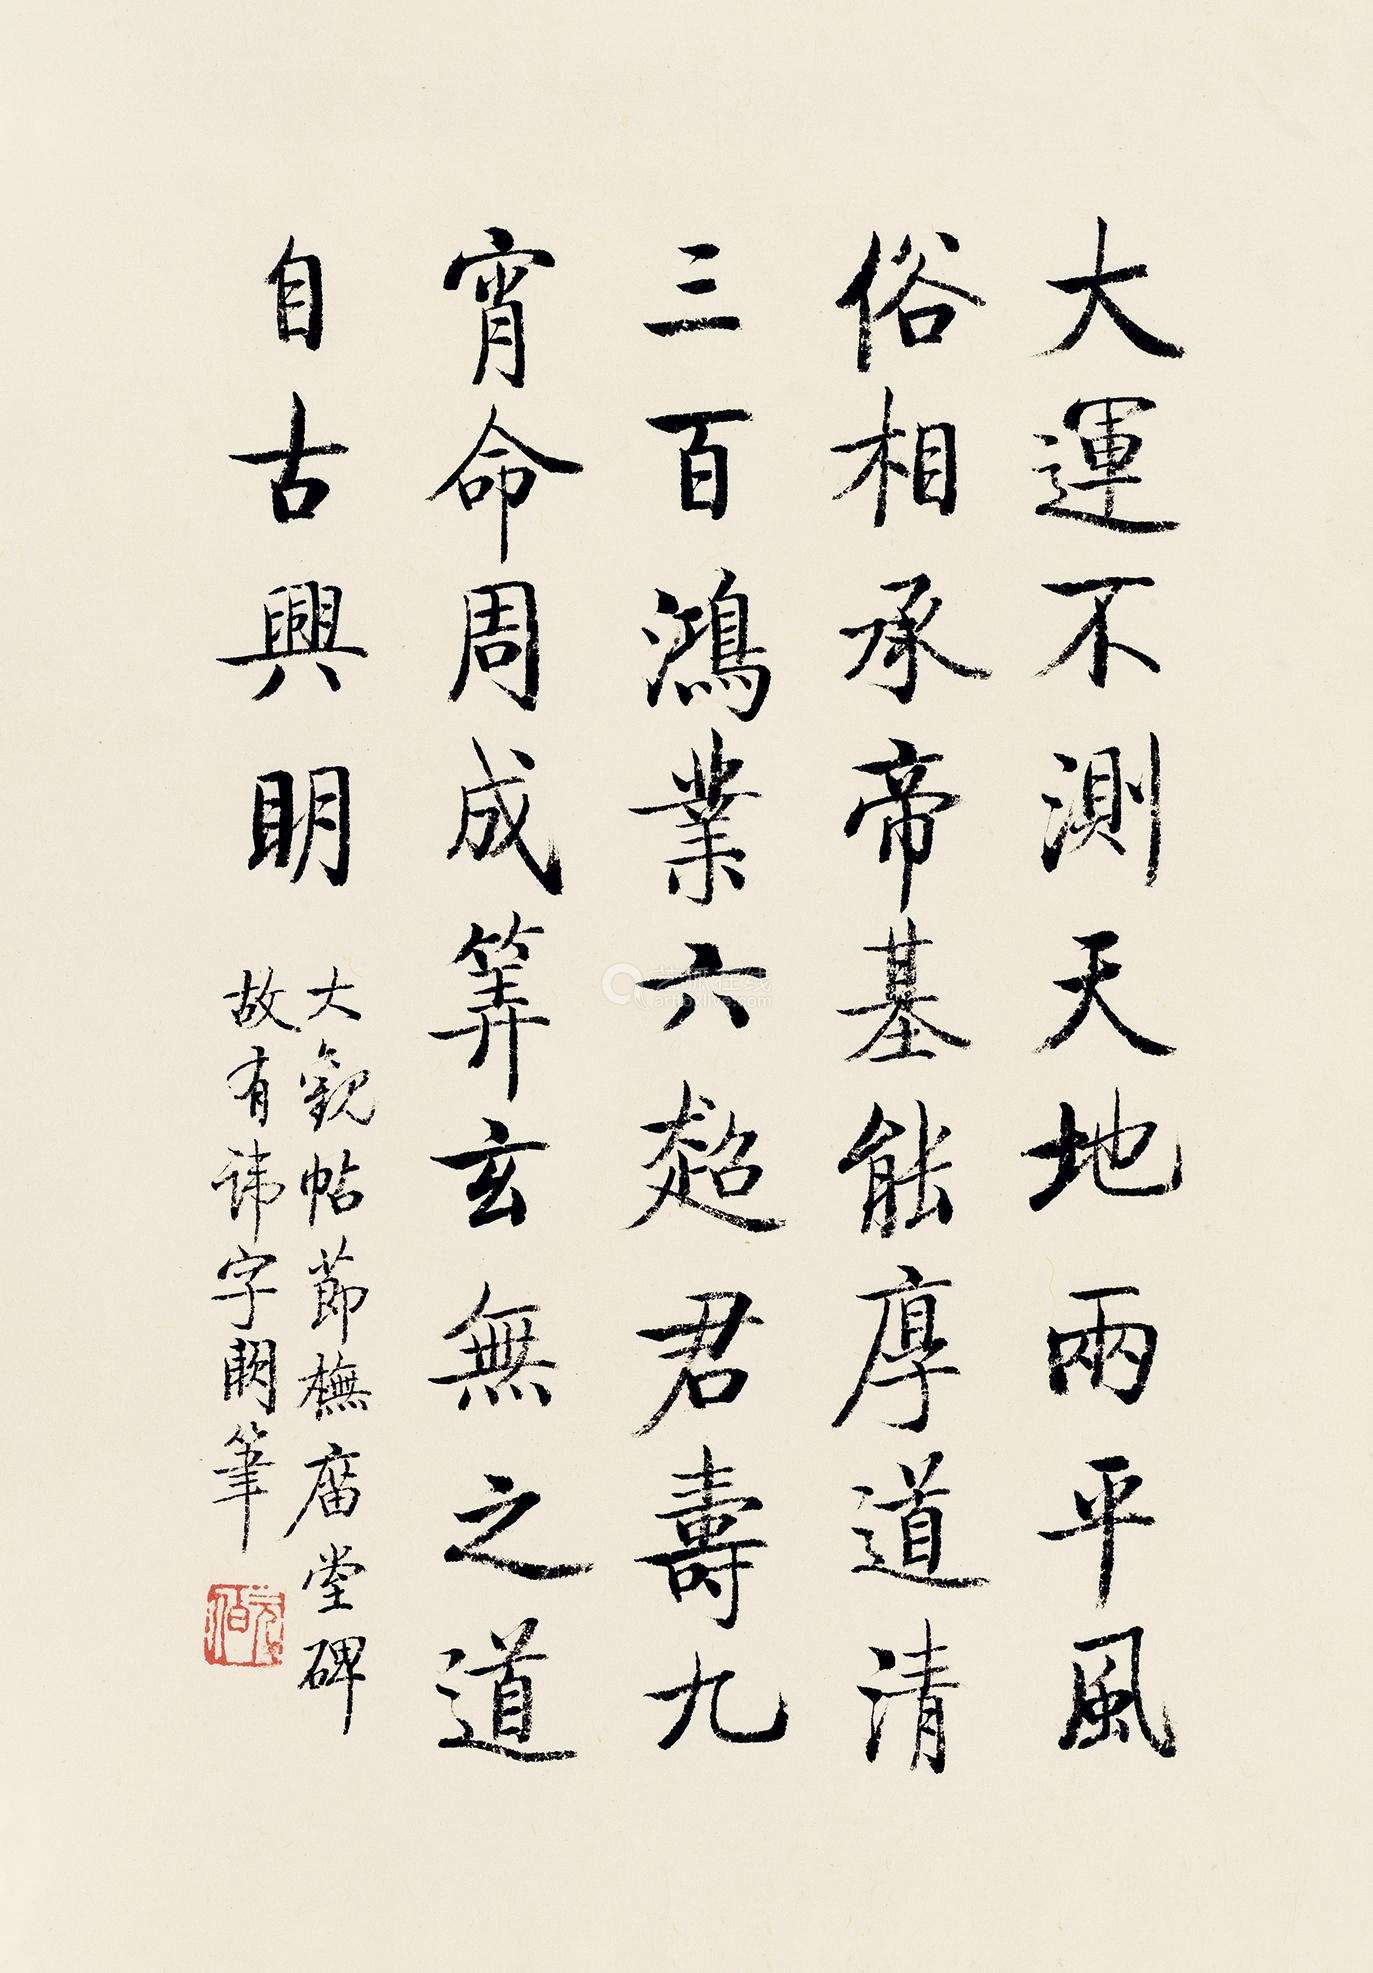 大運不測天地兩平風
俗相承帝基能厚道清
三百鴻業六超君壽九
宵命周成筭玄無之道
自古興明
大觀帖節橅庿堂碑
故有諱字闕筆